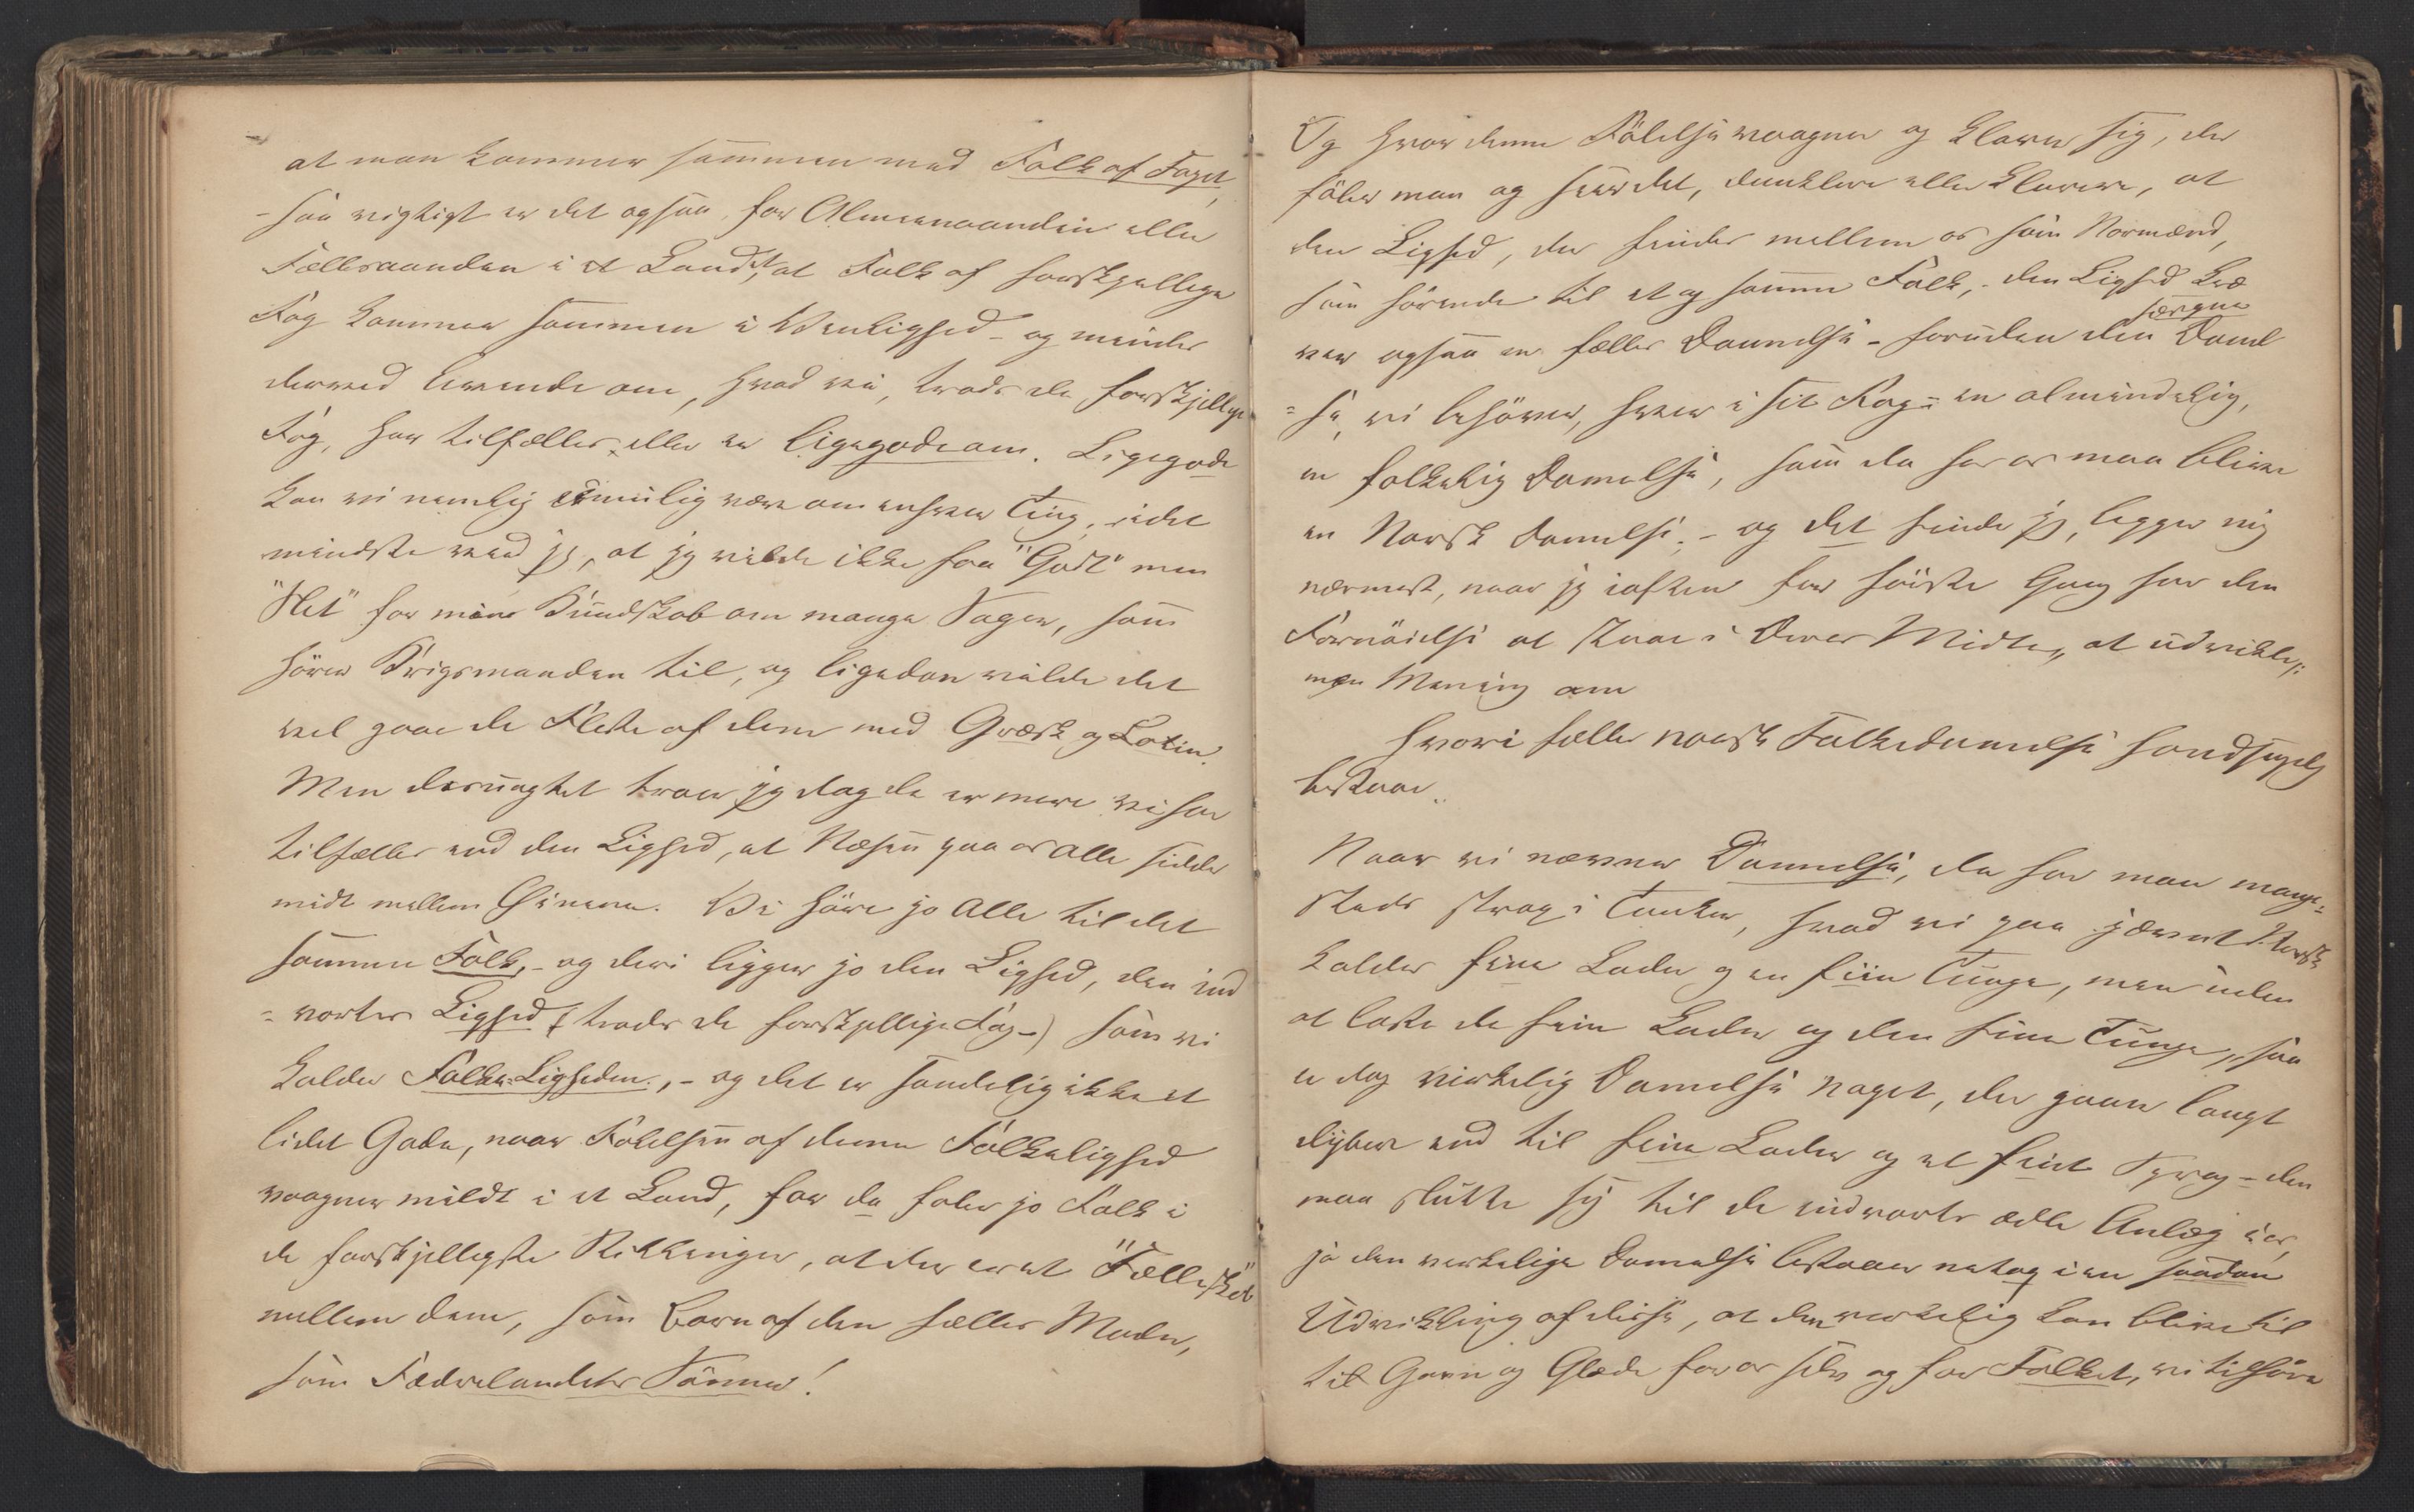 at man kommer sammen med Folk af Faget,
- saa vigtigt er det ogsaa for Almeenaanden eller
Fællesaanden i et Land, at Folk af forskjellige
Fag kommer sammen i Venlighed - og mindes
derved levende om, hvad vi, trods de forskjellige
Fag, har tilfælles eller er ligegode om. Ligegode
kan vi nemlig umulig være om enhver Ting, i det
mindste veed jeg, at jeg vilde ikke faa "Godt" men
"Slet" for mine Kundskab om mange Sager, som
hører Krigsmanden til, og ligedan vilde det
vel gaae de Fleste af dem med Græsk og Latin.
Men desuagtet troer jeg dog der er mere vi har
tilfælles end den Lighed, at Næsen paa os alle sidder
midt mellem Øinene. Vi høre jo Alle til det
samme Folk, - og deri ligger jo den Lighed, den ind
= vortes Lighed (trods de forskjellige Fag -) som vi
kalder Folke-Ligheden, - og det er sandelig ikke et
lidet Gode, naar Følelsen af denne Folkelighed
vaagner mildt i et Land, for da føler jo Folk i
de forskjelligste Stillinger, at der er et "Fællesskab"
mellem dem, som Børn af den fælles Moder,
som Fædrelandets Sønner!
Og hvor denne Følelse vaagner og klarer sig, der
føler man og seer det, dunklere eller klarere, at
den Lighed, der findes mellem os som Normænd,
som hørende til et og samme Folk, - den Lighed kræ
særegne
ver ogsaa en fælles Dannelse - foruden den Dannel
= se, vi behøver, hver i sit Fag = en almindelig,
en folkelig Dannelse, som da for os maa blive
en Norsk Dannelse; - og det finder jeg, ligger mig
nærmest, naar jeg iaften for første Gang har den
Fornøielse at staae i Deres Midte, at udvikle
min Mening om
Hvori fælles norsk Folkedannelse
bestaaer.
Naar vi nævner Dannelse, da har man mange=
steds strax i Tanker, hvad vi paa jævnt Norsk
kalder fine Lader og en fiin Tunge, men uden
at laste de fine Lader og den fine Tunge, saa
er dog virkelig Dannelse noget, der gaaer langt
dybere end til fine Lader og et fint Sprog - den
maa slutte sig til de indvortes ædle Anlæg i os,
ja den virkelige Dannelse bestaaer netop i en saadan
Udvikling af disse, at den virkelig kan blive til
til Gavn og Glæde for os selv og for Folket, vi tilhøre